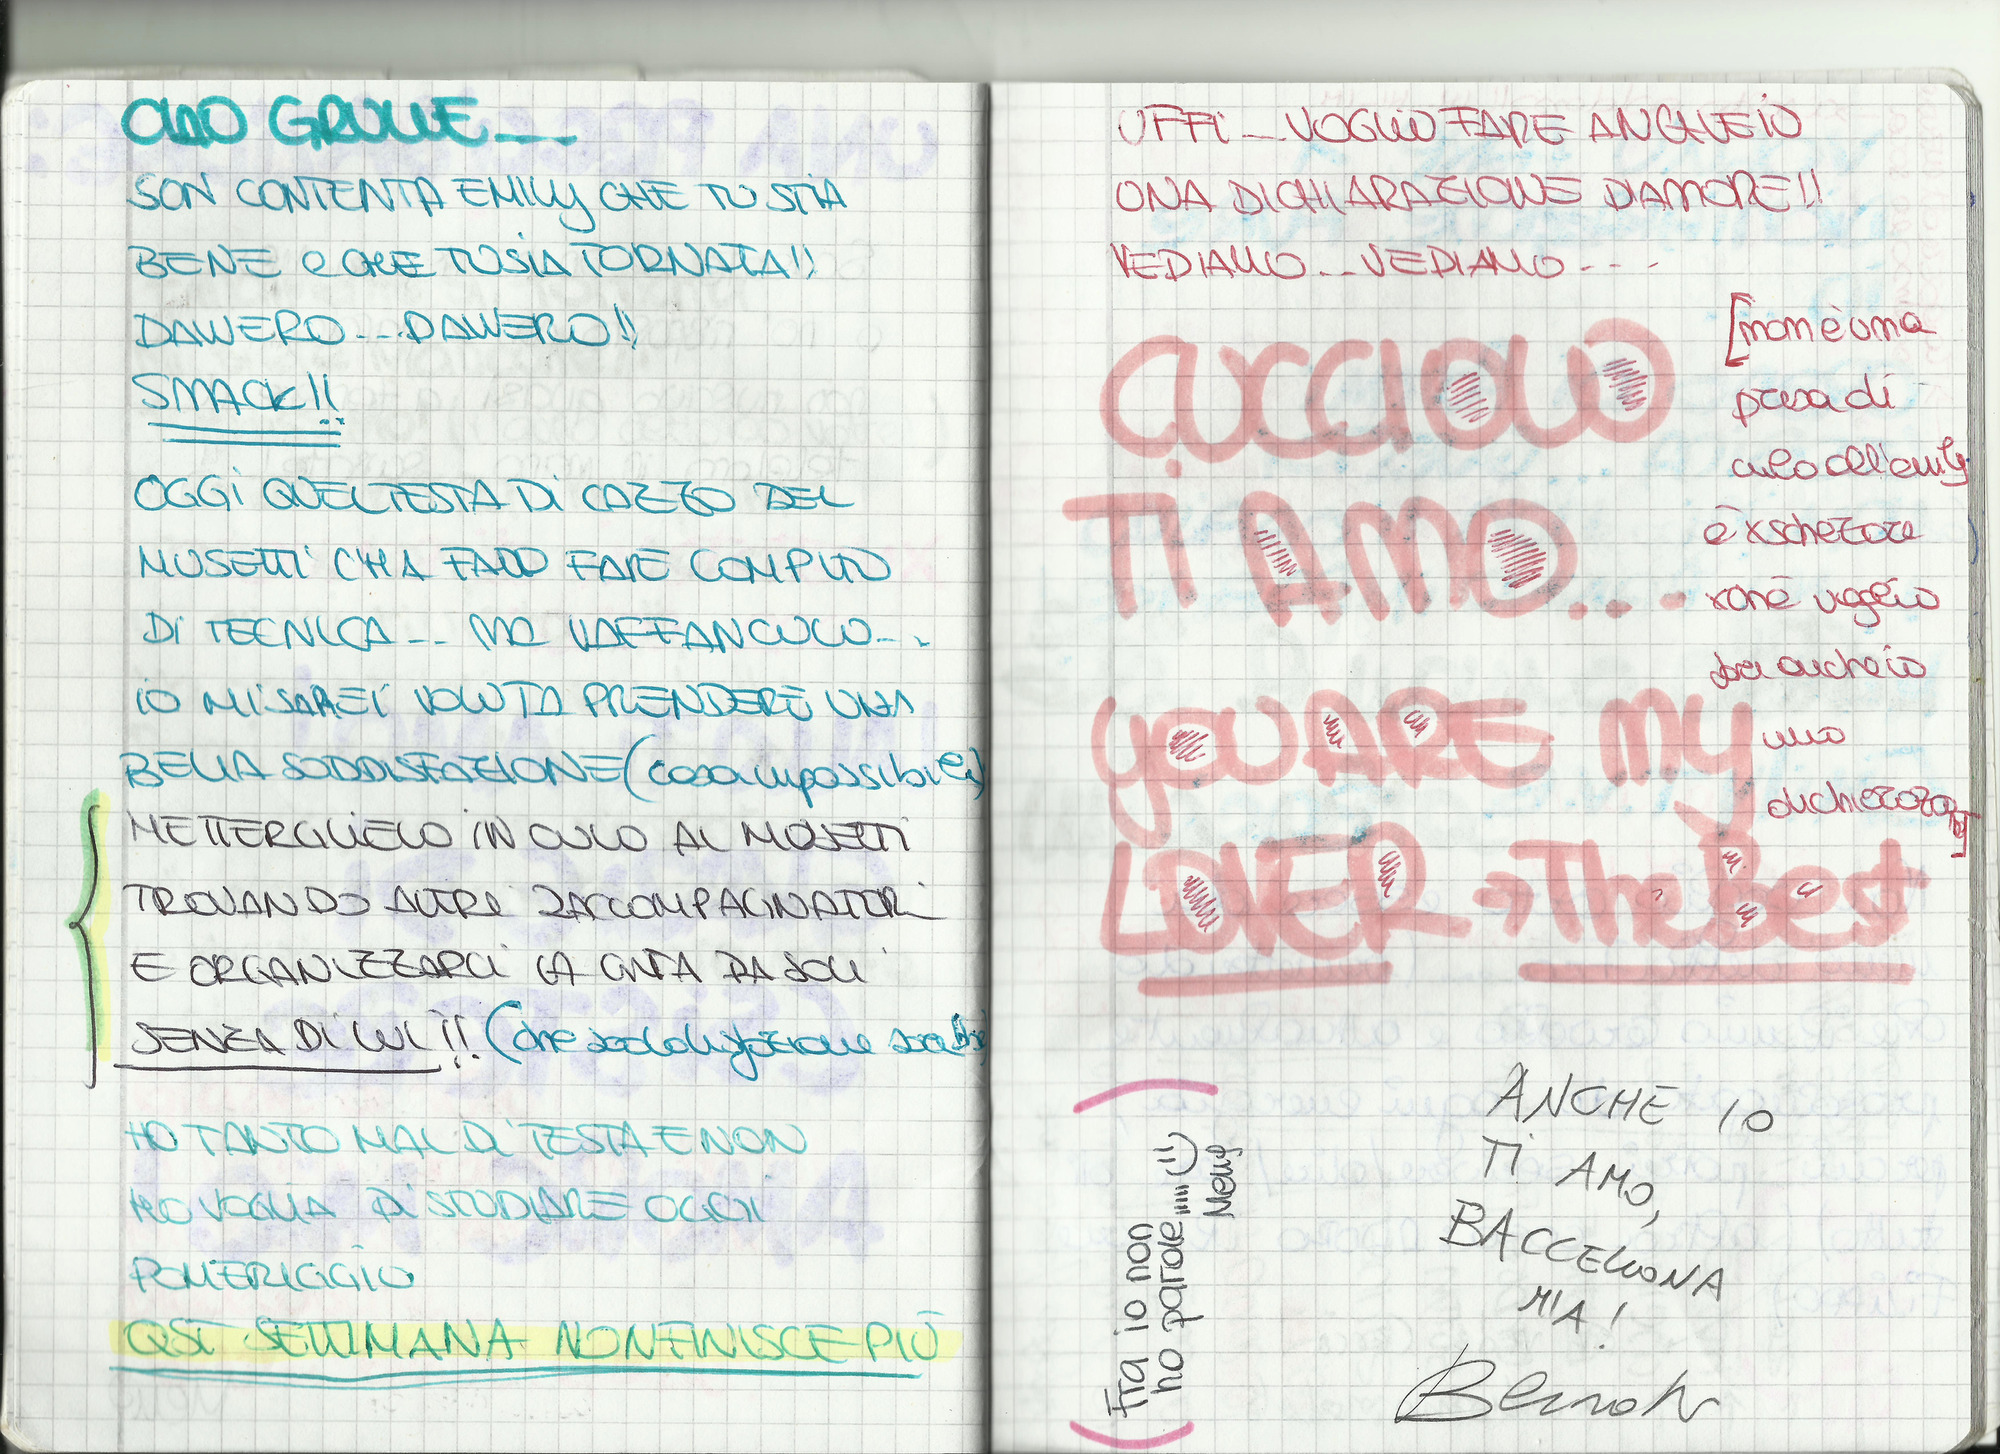 CIAO GRULLE...
SON CONTENTA EMILY CHE TU STIA
BENE e CHE TU SIA TORNATA!!
DAVVERO...DAVVERO!!
SMACK!!
OGGI QUEL TESTA DI CAZZO DEL
MUSETTI C'HA FATTO FARE COMPITO
DI TECNICA... MA VAFFANCULO...
IO MI SAREI VOLUTA PRENDERE UNA
BELLA SODDISFAZIONE (cosa impossibile)
METTERGLIELO IN CULO AL MUSETTI
TROVANDO ALTRI RACCOMPAGNATORI
E ORGANIZZARCI LA GITA DA SOLI
SENZA DI LUI!! (che soddisfazione sarebbe)
HO TANTO MAL DI TESTA E NON
HO VOGLIA DI STUDIARE OGGI
POMERIGGIO
QST SETTIMANA NON FINISCE PIÙ
UFFI...VOGLIO FARE ANCHE IO
UNA DICHIARAZIONE D'AMORE!!
VEDIAMO...VEDIAMO...
CUCCIOLO
TI AMO...
YOU ARE MY
LOVER → The Best
[non è una
presa di
culo all'emily
è x scherzare
xchè voglio
fare anche io
una
dichiarazione]
(Fra io non
ho parole,,,,, :)
Meny
ANCHE IO
TI AMO,
BACCELLONA
MIA!